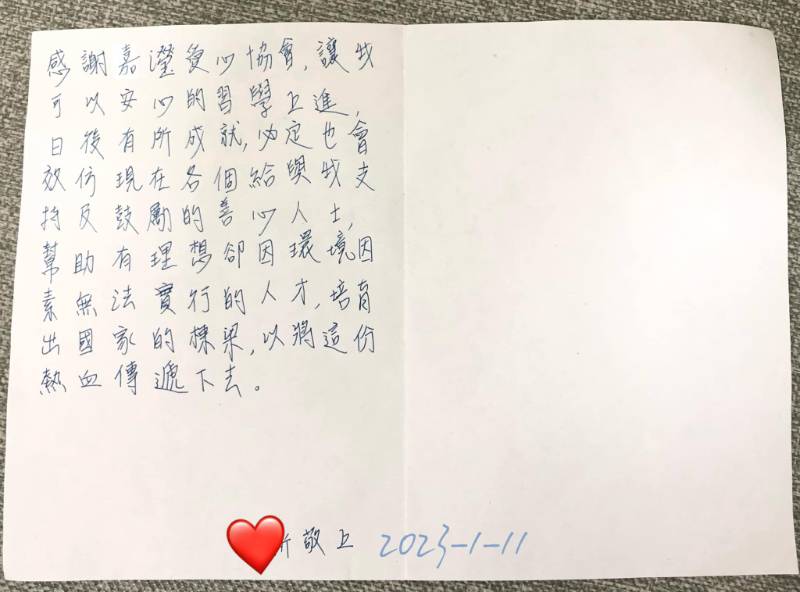 感謝嘉瀅愛心協會,讓我
可以安心的習學上進,
日後有所成就,必定也會
效仿現在各個給與我支
持及鼓勵的善心人士,
幫助有理想卻因環境因
素無法實行的人才,培育
出國家的棟梁,以將這份
熱血傳遞下去。
敬上 2023-1-11